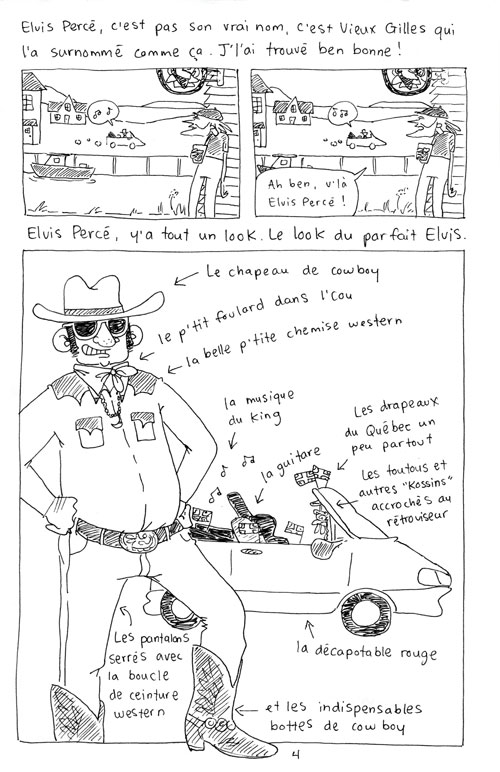 Elvis Percé, c'est pas son vrai nom, c'est Vieux Gilles qui
l'a surnommé comme ça. J'l'ai trouvé ben bonne !
Ah ben, v'là
Elvis Percé !
Elvis Percé, y'a tout un look. Le look du parfait Elvis.
Le chapeau de cowboy
le p'tit foulard dans l'cou
la belle p'tite chemise western
la musique
du King
la guitare
Les drapeaux
du Québec un
peu partout
Les toutous et
autres "Kossins"
accrochés au
rétroviseur
Les pantalons
serrés avec
la boucle
de ceinture
western
la décapotable rouge
et les indispensables
bottes de cowboy
4